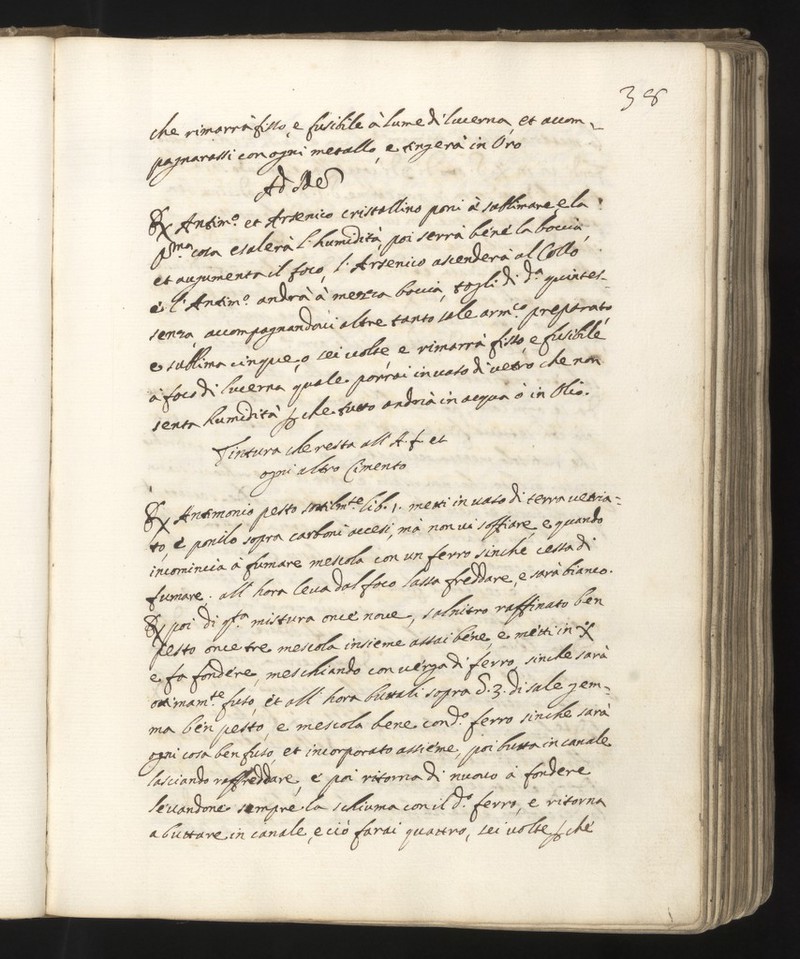 38
che rimarrà fisso, e fusibile à lume di lucerna, et accom-
pagnarassi con ogni metallo, e tingerà in Oro
Ad
Antim.o et Arsenico cristallino poni à sublimare e la
p.ma cosa esalerà l'humidità, poi serra bene la boccia,
et augumenta il foco, l'Arsenico ascenderà al Collo
e l'Antim.o andrà à mezza boccia, togli di d.a quintes-
senza, accompagnandovi altre tanto sale arm.co preparato
e sublima cinque, o sei volte e rimarrà fisso, e fusibile
à foco di lucerna quale porrai in vaso di vetro che non
senta humidità che tutto andrà in acqua ò in Olio.
Tintura che resta all' A f et
ogni altro Cimento
Antimonio pesto sottilm.te lib. 1. metti in vaso di terra vetria-
to, e ponilo sopra carboni accesi, mà non vi soffiare, e quando
incomincia à fumare mescola con un ferro sinche cessa di
fumare. all' hora leva dal foco lassa freddare, e sarà bianco.
poi di q.ta mistura once nove, salnitro raffinato ben
pesto once tre mescola insieme assai bene, e metti in
e fa fondere, meschiando con verga di ferro, sinche sarà
ottimam.te fuso, et all' hora buttali sopra 3. di sale gem-
ma ben pesto, e mescola bene con d.o ferro sinche sarà
ogni cosa ben fuso, et incorporato assieme, poi butta in canale
lasciando raffreddare, e poi ritorna di nuovo à fondere
levandone sempre la schiuma con il d.o ferro, e ritorna
a buttare in canale, e ciò farai quattro, sei volte che